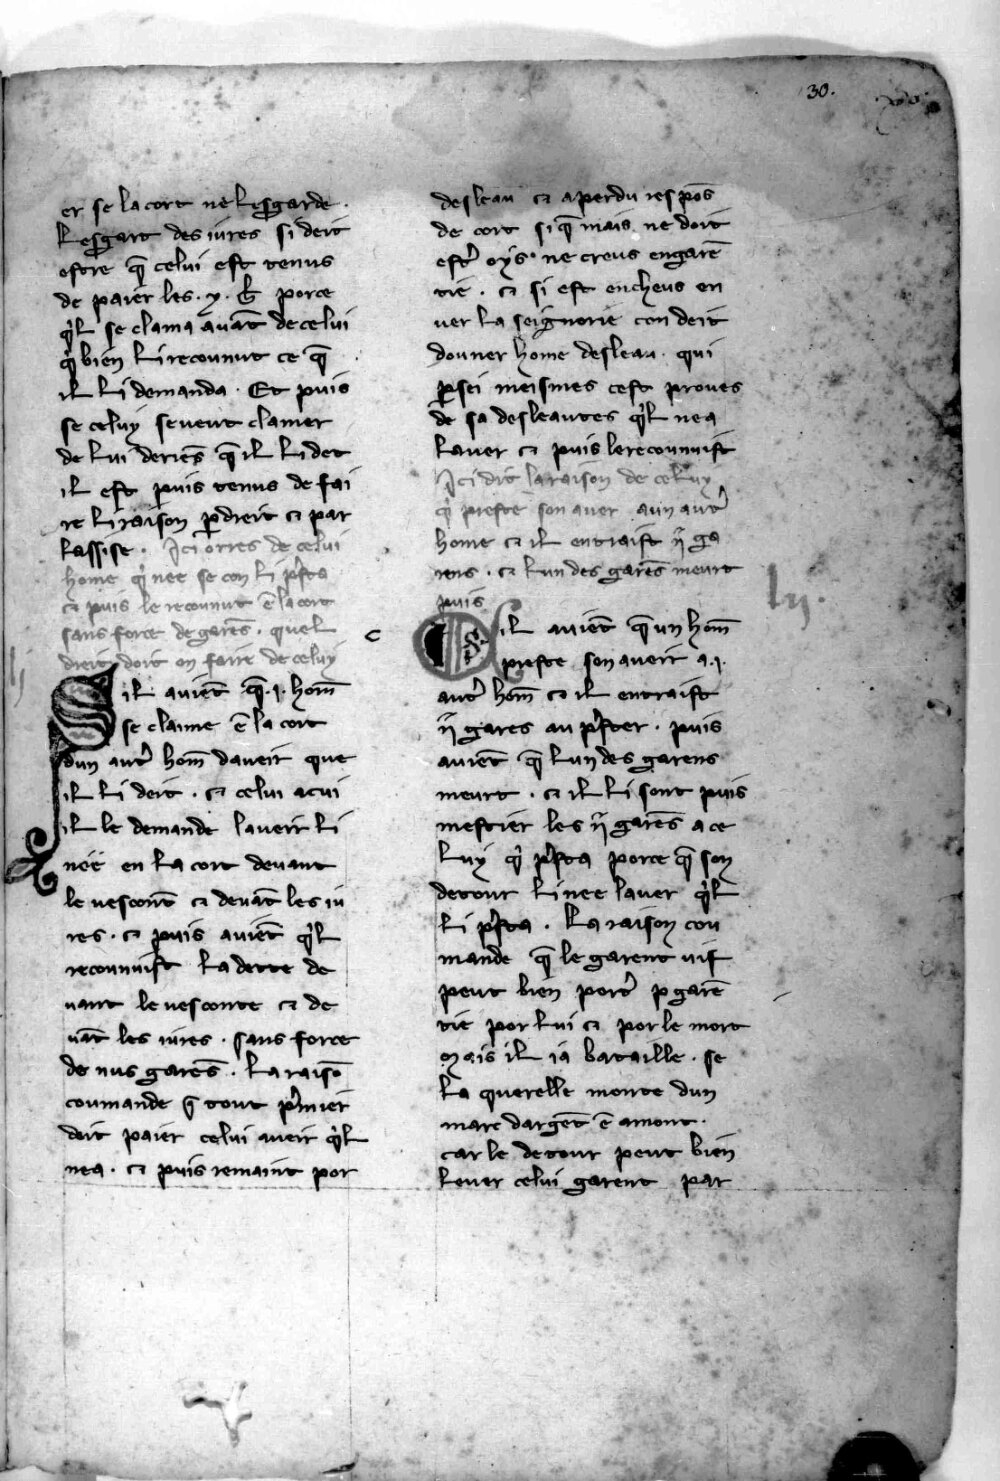 30.
er se la cort ne lesgarde.
Lesgart des iures si deit
estre q̄ celui est tenus
de paier les . y . b̄ porce
q̓l se clama auāt de celui
q̓ bien li reconnut ce q̄
il li demanda . Et puis
se celuy se ueut clamer
de lui deriēs q̄ il li det
il est puis tenus de fai
re li raison ꝑ dreit ⁊ par
lassise . Ici orres de celui
home q̓ nee se con li p̓sta
⁊ puis le reconnut ē la cort
sans force de garēs . quel
dreit doit on faire de celuy
lj
Sil auiēt q̄ .i. hom̄
se claime ē la cort
dun aut̓ hom̄ daueir que
il li deit . ⁊ celui a cui
il le demande laueir li
neē en la cort deuant
le uescont̄ ⁊ deuāt les iu
res . ⁊ puis auiēt q̓l
reconuist la dette de
uant le uesconte ⁊ de
uāt les iures . sans force
de nus garēs . La raisō
coumande q̄ tout p̓mier
doit paier celui aueir q̓l
nea . ⁊ puis remaint por
desleau ⁊ a perdu respōs
de cort si q̄ mais ne doit
est̓ oys ne creus en garē
tie . ⁊ si est encheus en
uer la seignorie con deit
douner home desleau . qui
ꝑ sei meismes cest proues
de sa desleautes q̓l nea
lauer ⁊ puis le reconnuist
Ici dit la raison de celuy
q̓ preste son auer a un aut̓
home ⁊ il en traist .ij. ga
rens . ⁊ lun des garēs meurt
puis
lij.
Sil auiēt q̄ un hom̄
preste son aueir a .i.
aut̓ hom̄ ⁊ il en traist
.ij. gares au p̓ster . puis
auiēt q̄ lun des garens
meurt . ⁊ il li sont puis
mestier les .ij. garēs a ce
luy q̓ p̓sta porce q̄ son
detour li nee lauer q̓l
li p̓sta . La raison cou
mande q̄ le garent uif
peut bien port̓ ꝑ garē
tie por lui ⁊ por le mort
mais il i a bataille . se
la querelle monte dun
marc dargēt ē amont .
car le detour peut bien
leuer celui garent par